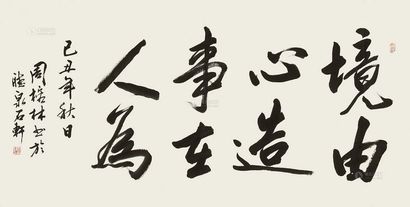 境由
心造
事在
人為
己丑年秋日
周榕林书於
勝泉石軒